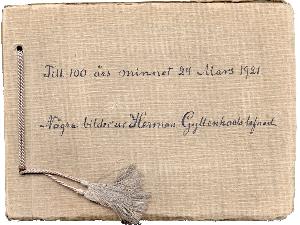 Till 100 års minnet 24 Mars 1921
Några bilder ur Herman Gyllenhaals lefnad.